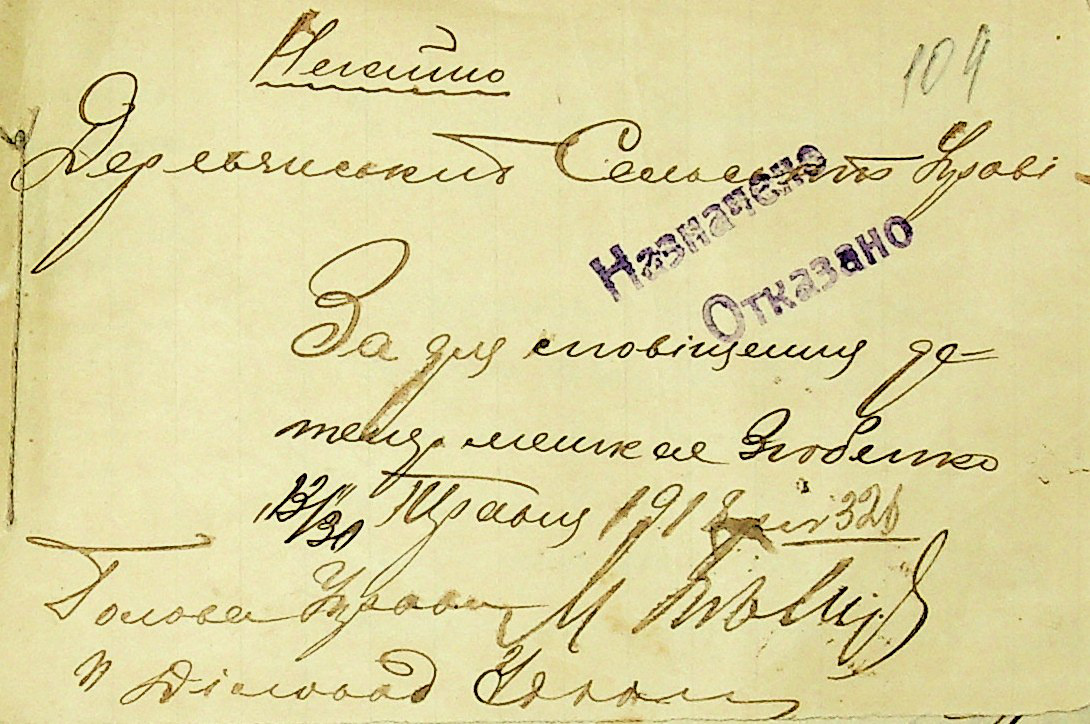 Негайно
104
Дерлвянський Сельській Управі
Назначено
Отказано
За для сповіщення де-
тенд. мешкае Зюбенко
13/30 Травня 1918 № 326
Голова Управи М
Діловод